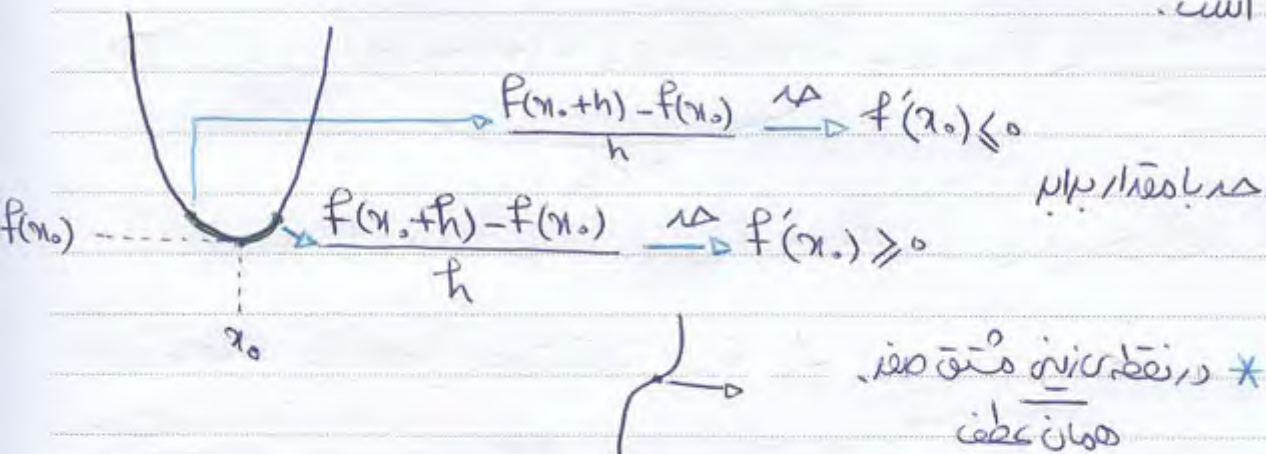 است.
f(x₀+h) - f(x₀) / h حد → f'(x₀) ≤ 0
حد با مقدار برابر
f(x₀)
f(x₀+h) - f(x₀) / h حد → f'(x₀) ≥ 0
x₀
* در نقطه‌ی زینی مشتق صفر.
همان عطف